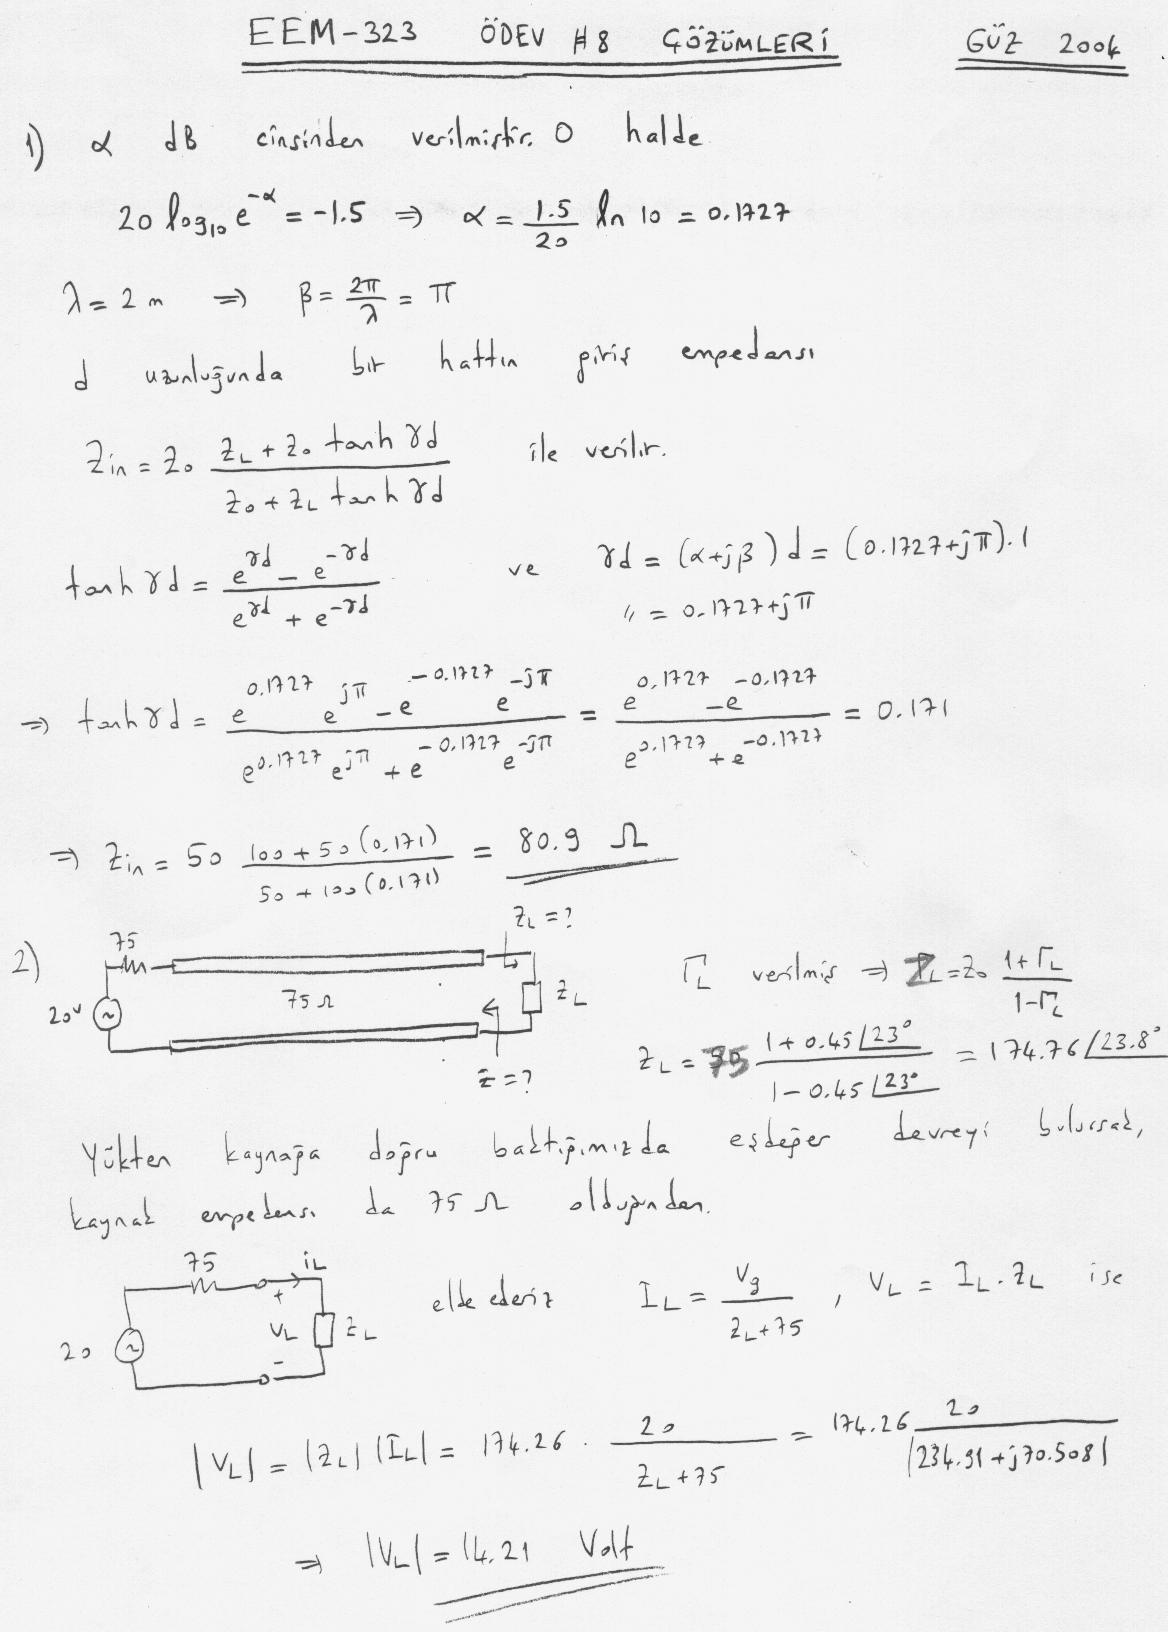 EEM-323 ÖDEV #8 ÇÖZÜMLERİ GÜZ 2004
1) α dB cinsinden verilmiştir. O halde
20 log₁₀ e^-α = -1.5 ⇒ α = 1.5/20 ln 10 = 0.1727
λ = 2 m ⇒ β = 2π/λ = π
d uzunluğunda bir hattın giriş empedansı
Zin = Z₀ (ZL + Z₀ tanh γd)/(Z₀ + ZL tanh γd) ile verilir.
tanh γd = (e^γd - e^-γd)/(e^γd + e^-γd) ve γd = (α+jβ)d = (0.1727+jπ).1
" = 0.1727+jπ
⇒ tanh γd = (e^0.1727 e^jπ - e^-0.1727 e^-jπ)/(e^0.1727 e^jπ + e^-0.1727 e^-jπ) = (e^0.1727 - e^-0.1727)/(e^0.1727 + e^-0.1727) = 0.171
⇒ Zin = 50 (100 + 50(0.171))/(50 + 100(0.171)) = 80.9 Ω
2) 75 ZL = ?
20v 75 Ω ZL
Z = ?
ΓL verilmiş ⇒ ZL = Z₀ (1+ΓL)/(1-ΓL)
ZL = 75 (1 + 0.45∠23°)/(1 - 0.45∠23°) = 174.76∠23.8°
Yükten kaynağa doğru baktığımızda eşdeğer devreyi bulursak,
kaynak empedansı da 75 Ω olduğundan.
75 iL
20 + VL - ZL
elde ederiz IL = Vg/(ZL+75) , VL = IL.ZL ise
|VL| = |ZL| |IL| = 174.26 . 20/(ZL+75) = 174.26 20/|234.91+j70.508|
⇒ |VL| = 14.21 Volt